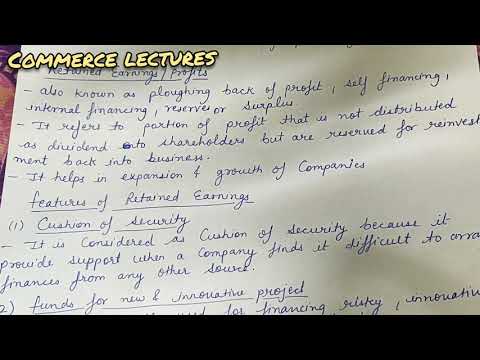 COMMERCE LECTURES
Retained Earnings/Profits
- also known as ploughing back of profit, self financing,
internal financing, reserve or Surplus
- It refers to portion of profit that is not distributed
as dividend to shareholders but are reserved for reinvest
ment back into business.
- It helps in expansion & growth of Companies
features of Retained Earnings
(1) Cushion of Security
- It is Considered as Cushion of Security because it
provide support when a Company finds it difficult to
finances from any other Source.
2) funds for new & innovative project
used for financing risky, innovative